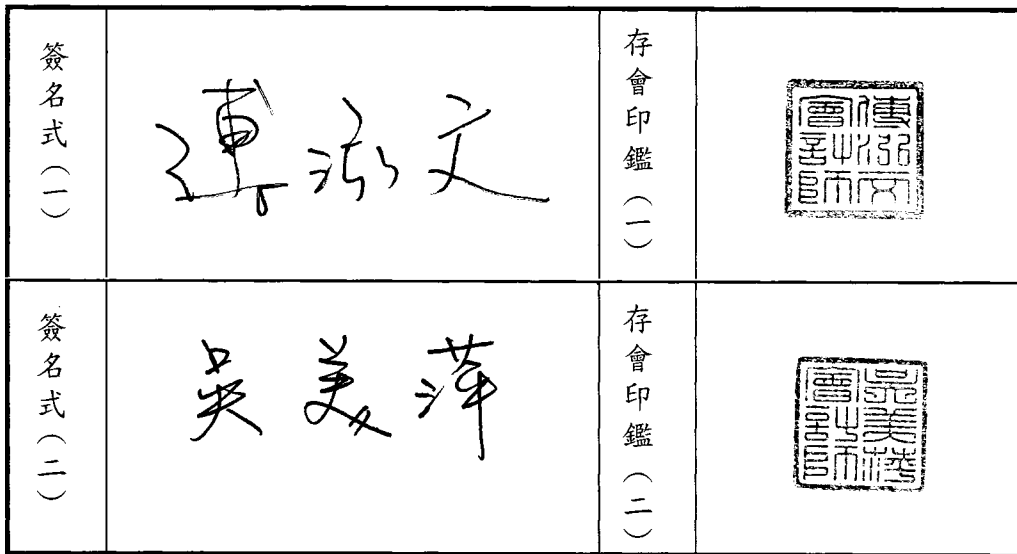 簽名式（一）
傅泓文
存會印鑑（一）
傅泓文會計師
簽名式（二）
吳美萍
存會印鑑（二）
吳美萍會計師